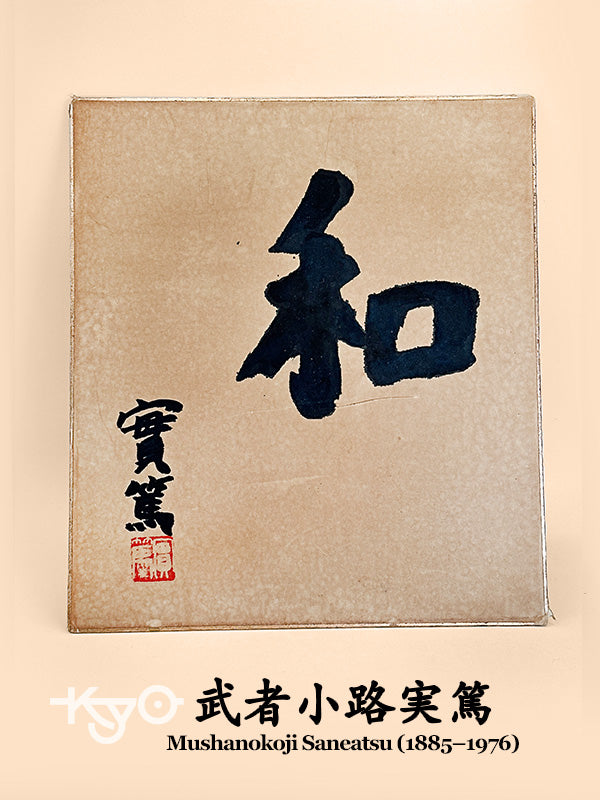 和
實篤
實篤
Kyo
武者小路実篤
Mushanokoji Saneatsu (1885–1976)